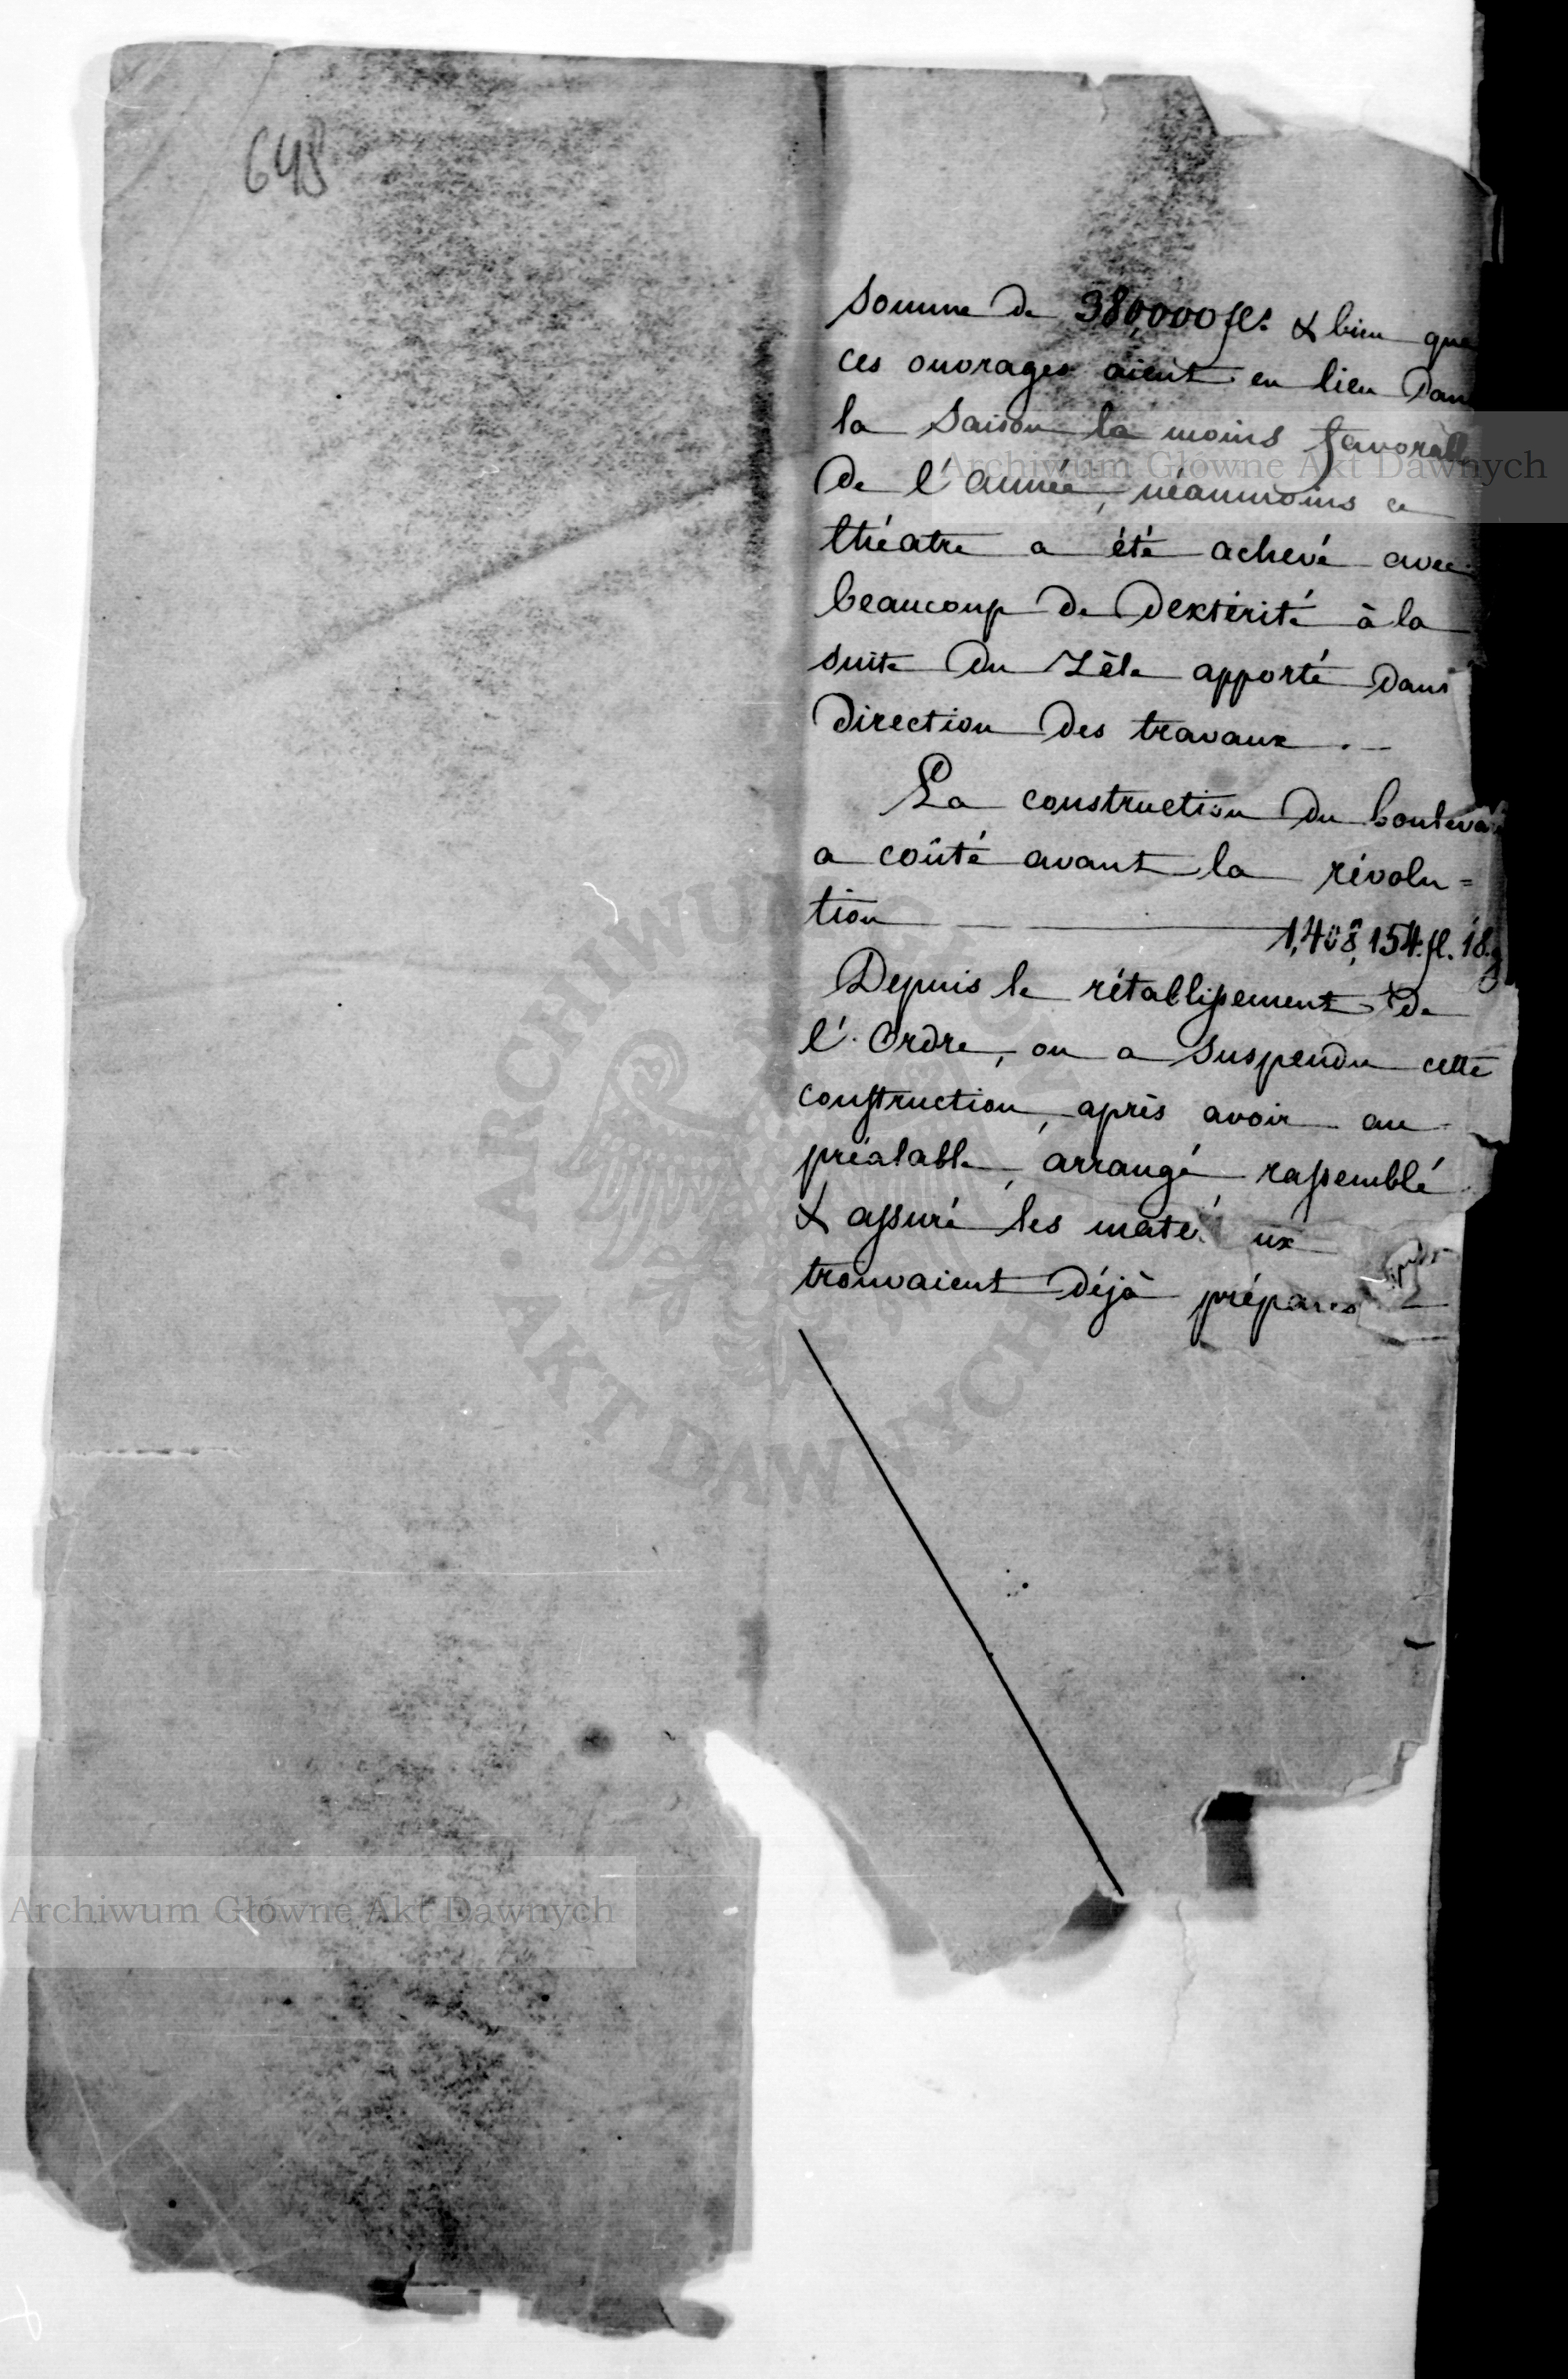 648
somme de 380,000 fls. & bien que
ces ouvrages aient eu lieu dans
la saison la moins favorabl
de l'année, néanmoins ce
théatre a été achevé avec
beaucoup de dextérité à la
suite du zèle apporté dans
direction des travaux. —
La construction du bouleva
a coûté avant la révolu=
tion — 1,408,154 fl. 18 g
Depuis le rétablissement de
l'Ordre, on a suspendu cette
construction, après avoir au
préalable, arrangé rassemblé
& assuré les maté ux
trouvaient déjà préparés
Archiwum Główne Akt Dawnych
Archiwum Główne Akt Dawnych
ARCHIWUM GŁÓWNE AKT DAWNYCH